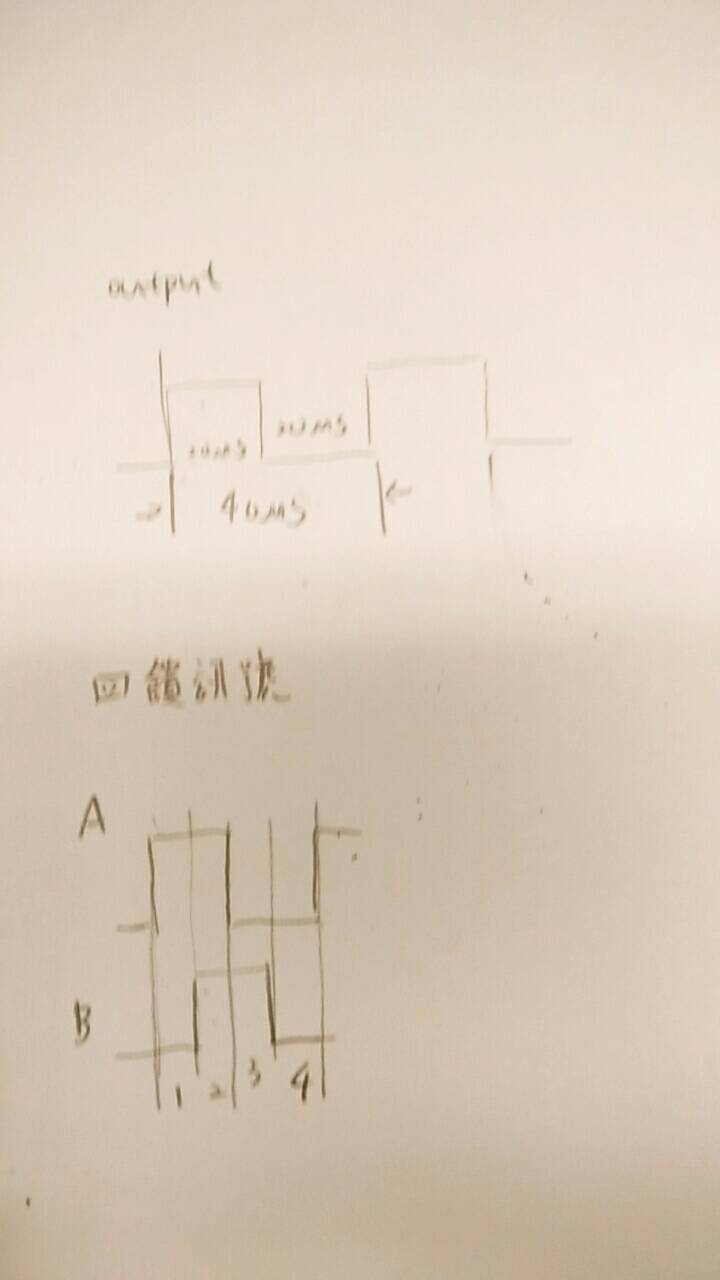 output
20ms
20ms
40ms
回饋訊號
A
B
1 2 3 4